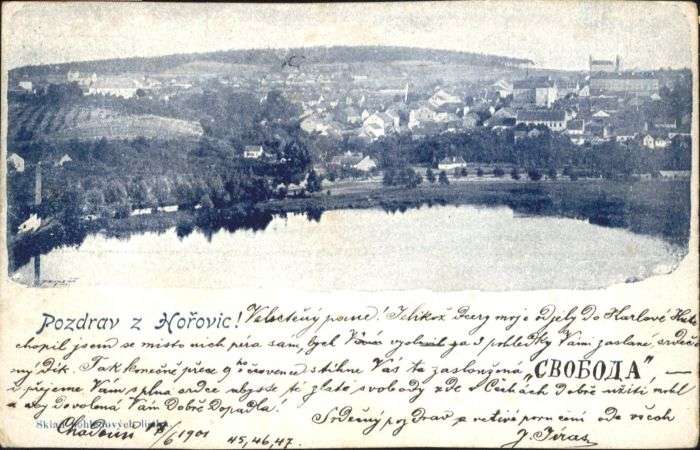 Pozdrav z Hořovic! Velectěný pane! Jelikož dcery moje odjely do Karlové Huti
chopil jsem se místo nich péra sám, bych Vám vyslovil za 3 pohledky Vám zaslané, srdeč
ný dík. Tak konečně přece 9ho července stihne Vás ta zasloužená "СВОБОДА" —
i přejeme Vám s plna srdce abyste té zlaté svobody zde v Čechách dobře užíti mohl
a by dovolená Vám dobře dopadla!
Srdečný pozdrav a uctivé poručení ode všech
Sklad
6/1901 45, 46, 47. J. Jíras